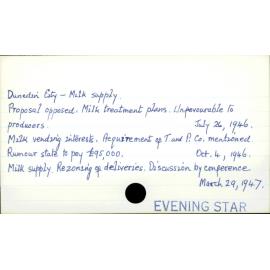 Dunedin City - Milk supply.
Proposal opposed. Milk treatment plans. Unfavourable to
producers. July 26, 1946.
Milk vending interests. Acquirement of T and P. Co. mentioned.
Rumour state to pay £95,000. Oct. 4, 1946.
Milk supply. Rezoning of deliveries. Discussion by conference
March 29, 1947.
EVENING STAR